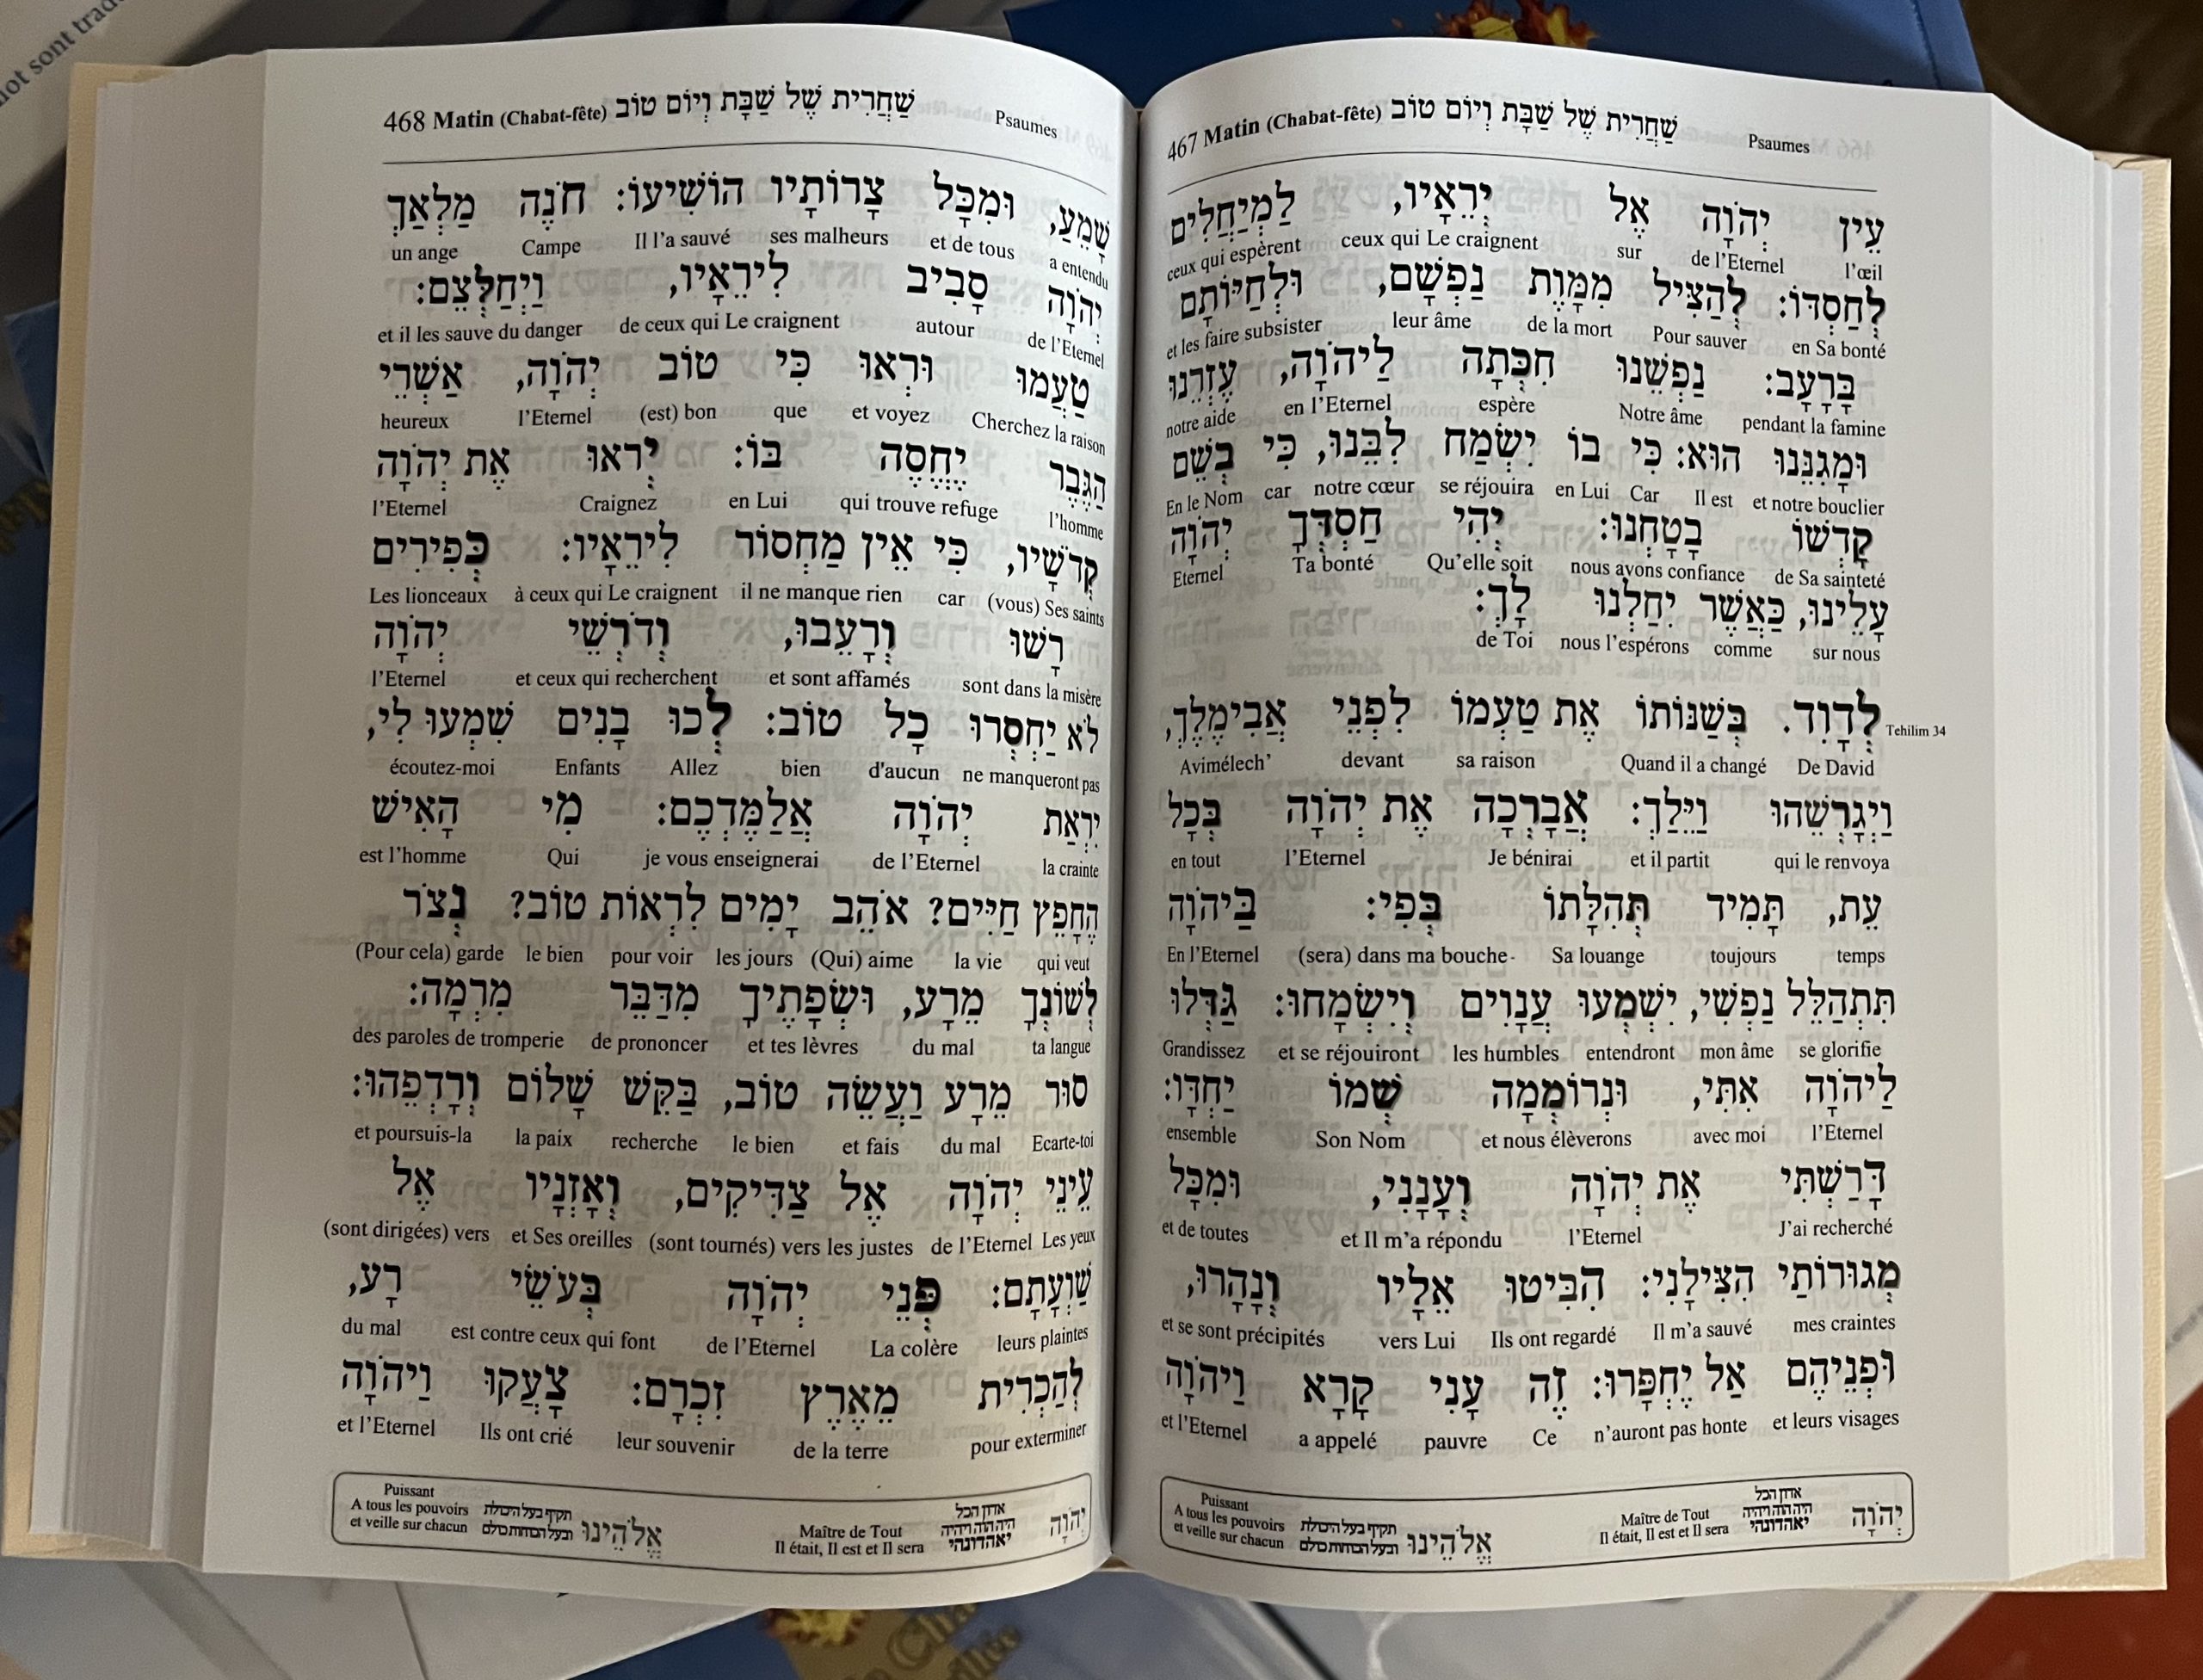 467 Matin (Chabat-fête) שַׁחֲרִית שֶׁל שַׁבָּת וְיוֹם טוֹב Psaumes
עֵין יְהֹוָה אֶל יְרֵאָיו, לַמְיַחֲלִים
l'œil de l'Eternel sur ceux qui Le craignent ceux qui espèrent
לְחַסְדּוֹ: לְהַצִּיל מִמָּוֶת נַפְשָׁם, וּלְחַיּוֹתָם
en Sa bonté Pour sauver de la mort leur âme et les faire subsister
בָּרָעָב: נַפְשֵׁנוּ חִכְּתָה לַיהֹוָה, עֶזְרֵנוּ
pendant la famine Notre âme espère en l'Eternel notre aide
וּמָגִנֵּנוּ הוּא: כִּי בוֹ יִשְׂמַח לִבֵּנוּ, כִּי בְשֵׁם
et notre bouclier Il est Car en Lui se réjouira notre cœur car En le Nom
קָדְשׁוֹ בָטָחְנוּ: יְהִי חַסְדְּךָ יְהֹוָה
de Sa sainteté nous avons confiance Qu'elle soit Ta bonté Eternel
עָלֵינוּ, כַּאֲשֶׁר יִחַלְנוּ לָךְ:
sur nous comme nous l'espérons de Toi
לְדָוִד. בְּשַׁנּוֹתוֹ אֶת טַעְמוֹ לִפְנֵי אֲבִימֶלֶךְ, Tehilim 34
De David Quand il a changé sa raison devant Avimélech'
וַיְגָרְשֵׁהוּ וַיֵּלַךְ: אֲבָרְכָה אֶת יְהֹוָה בְּכָל
qui le renvoya et il partit Je bénirai l'Eternel en tout
עֵת, תָּמִיד תְּהִלָּתוֹ בְּפִי: בַּיהֹוָה
temps toujours Sa louange (sera) dans ma bouche En l'Eternel
תִּתְהַלֵּל נַפְשִׁי, יִשְׁמְעוּ עֲנָוִים וְיִשְׂמָחוּ: גַּדְּלוּ
se glorifie mon âme entendront les humbles et se réjouiront Grandissez
לַיהֹוָה אִתִּי, וּנְרוֹמְמָה שְׁמוֹ יַחְדָּו:
l'Eternel avec moi et nous élèverons Son Nom ensemble
דָּרַשְׁתִּי אֶת יְהֹוָה וְעָנָנִי, וּמִכָּל
J'ai recherché l'Eternel et Il m'a répondu et de toutes
מְגוּרוֹתַי הִצִּילָנִי: הִבִּיטוּ אֵלָיו וְנָהָרוּ,
mes craintes Il m'a sauvé Ils ont regardé vers Lui et se sont précipités
וּפְנֵיהֶם אַל יֶחְפָּרוּ: זֶה עָנִי קָרָא וַיהֹוָה
et leurs visages n'auront pas honte Ce pauvre a appelé et l'Eternel
יְהֹוָה
אדון הכל
היה הוה ויהיה
יאהדונהי
Maître de Tout
Il était, Il est et Il sera
אֱלֹהֵינוּ
תקיף בעל היכולת
ובעל הכוחות כולם
Puissant
A tous les pouvoirs
et veille sur chacun
468 Matin (Chabat-fête) שַׁחֲרִית שֶׁל שַׁבָּת וְיוֹם טוֹב Psaumes
שָׁמֵעַ, וּמִכָּל צָרוֹתָיו הוֹשִׁיעוֹ: חֹנֶה מַלְאַךְ
a entendu et de tous ses malheurs Il l'a sauvé Campe un ange
יְהֹוָה סָבִיב לִירֵאָיו, וַיְחַלְּצֵם:
de l'Eternel autour de ceux qui Le craignent et il les sauve du danger
טַעֲמוּ וּרְאוּ כִּי טוֹב יְהֹוָה, אַשְׁרֵי
Cherchez la raison et voyez que (est) bon l'Eternel heureux
הַגֶּבֶר יֶחֱסֶה בּוֹ: יְראוּ אֶת יְהֹוָה
l'homme qui trouve refuge en Lui Craignez l'Eternel
קְדֹשָׁיו, כִּי אֵין מַחְסוֹר לִירֵאָיו: כְּפִירִים
(vous) Ses saints car il ne manque rien à ceux qui Le craignent Les lionceaux
רָשׁוּ וְרָעֵבוּ, וְדֹרְשֵׁי יְהֹוָה
sont dans la misère et sont affamés et ceux qui recherchent l'Eternel
לֹא יַחְסְרוּ כָל טוֹב: לְכוּ בָנִים שִׁמְעוּ לִי,
ne manqueront pas d'aucun bien Allez Enfants écoutez-moi
יִרְאַת יְהֹוָה אֲלַמֶּדְכֶם: מִי הָאִישׁ
la crainte de l'Eternel je vous enseignerai Qui est l'homme
הֶחָפֵץ חַיִּים? אֹהֵב יָמִים לִרְאוֹת טוֹב? נְצֹר
qui veut la vie (Qui) aime les jours pour voir le bien (Pour cela) garde
לְשׁוֹנְךָ מֵרָע, וּשְׂפָתֶיךָ מִדַּבֵּר מִרְמָה:
ta langue du mal et tes lèvres de prononcer des paroles de tromperie
סוּר מֵרָע וַעֲשֵׂה טוֹב, בַּקֵּשׁ שָׁלוֹם וְרָדְפֵהוּ:
Ecarte-toi du mal et fais le bien recherche la paix et poursuis-la
עֵינֵי יְהֹוָה אֶל צַדִּיקִים, וְאָזְנָיו אֶל
Les yeux de l'Eternel (sont tournés) vers les justes et Ses oreilles (sont dirigées) vers
שַׁוְעָתָם: פְּנֵי יְהֹוָה בְּעֹשֵׂי רָע,
leurs plaintes La colère de l'Eternel est contre ceux qui font du mal
לְהַכְרִית מֵאֶרֶץ זִכְרָם: צָעֲקוּ וַיהֹוָה
pour exterminer de la terre leur souvenir Ils ont crié et l'Eternel
יְהֹוָה
אדון הכל
היה הוה ויהיה
יאהדונהי
Maître de Tout
Il était, Il est et Il sera
אֱלֹהֵינוּ
תקיף בעל היכולת
ובעל הכוחות כולם
Puissant
A tous les pouvoirs
et veille sur chacun
not sont trad